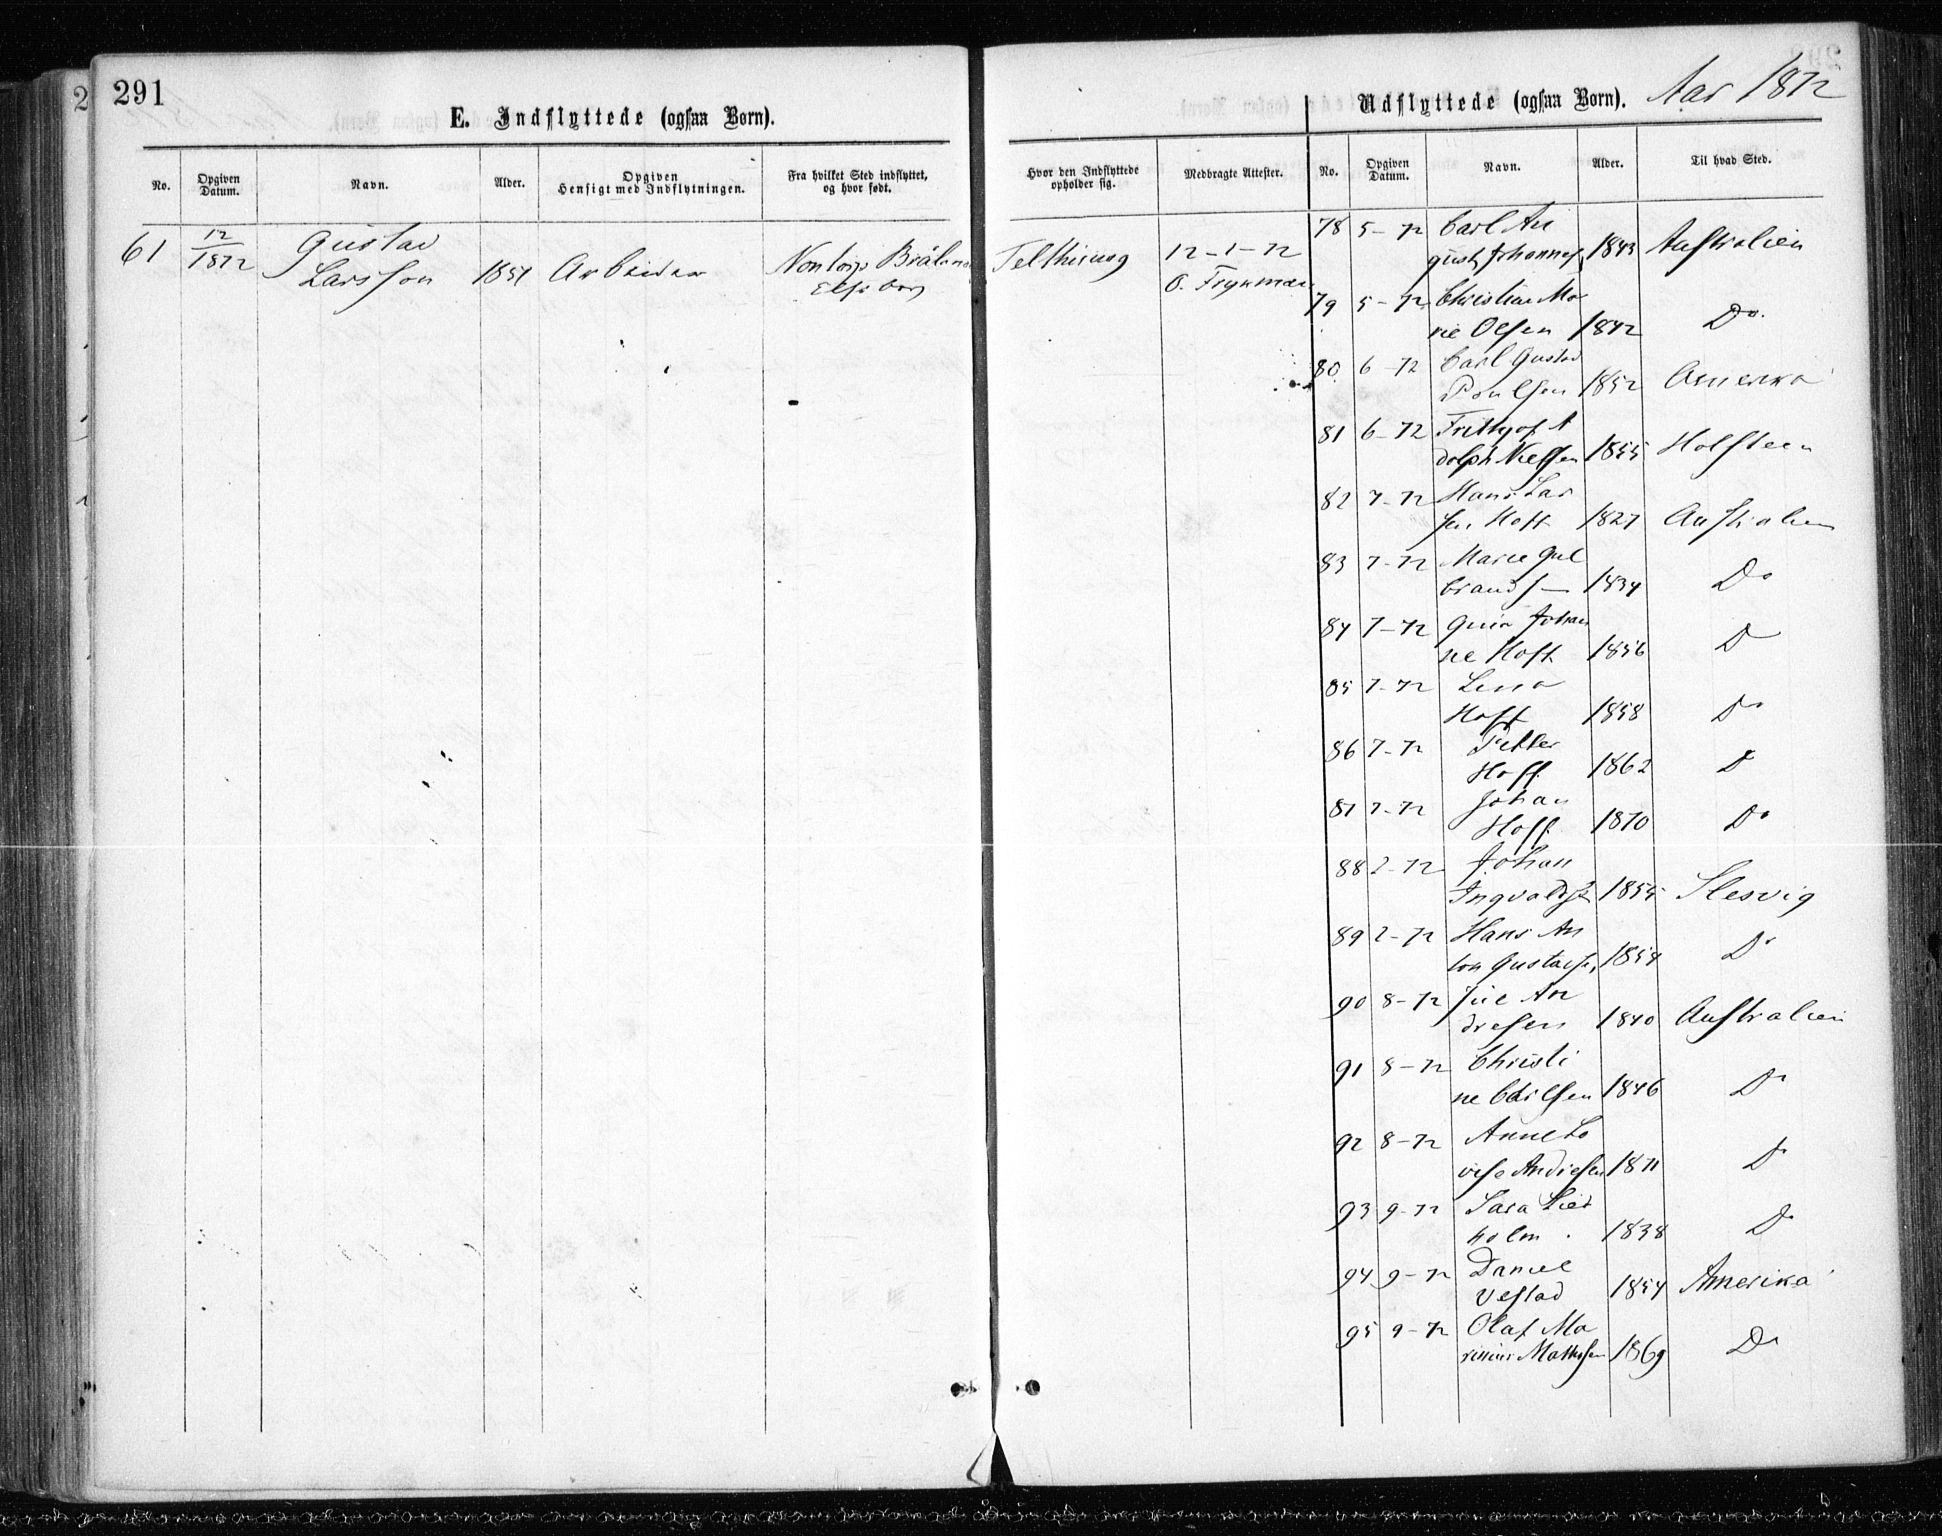 291
E. Indflyttede (ogsaa Børn).
No.
Opgiven
Datum.
Navn.
Alder.
Opgiven
Hensigt med Indflytningen.
Fra hvilket Sted indflyttet,
og hvor født.
61 12/1872 Gustav
Larsson 1851 Arbeider
Elfsborg
Udflyttede (ogsaa Børn). Aar 1872
Hvor den Indflyttede
opholder sig.
Medbragte Attester.
No.
Opgiven
Datum.
Navn.
Alder.
Til hvad Sted.
12-1-72
78 5-72 Carl Au
gust Johannes 1843 Australien
79 5-72 Christian Ma
rie Olsen 1842 Do.
80 6-72 Carl Gustav
Poulsen 1852 Amerika
81 6-72 Frithjof A
dolph Nielsen 1855 Holsteen
82 7-72 Hans Lar
sen Hoff 1827 Australien
83 7-72 Marie Gul
brands— 1834 Do
84 7-72 Johan
ne Hoff 1856 D
85 7-72 Lena
Hoff 1858 Do
86 7-72 Petter
Hoff 1862 D
87 7-72 Johan
Hoff 1870 Do
88 2-72 Johan
Ingvalds 1855 Slesvig
89 2-72 Hans An
ton Gustavsen 1854 Do
90 8-72 An
dresen 1840 Australien
91 8-72 Christi
ne 1846 Do
92 8-72 Anne Lo
vise Andresen 1871 Do
93 9-72 Sara Lied
holm. 1838 Do
94 9-72 Daniel
Vestad 1854 Amerika
95 9-72 Olaf Ma
rinius Mathisen 1869 Do